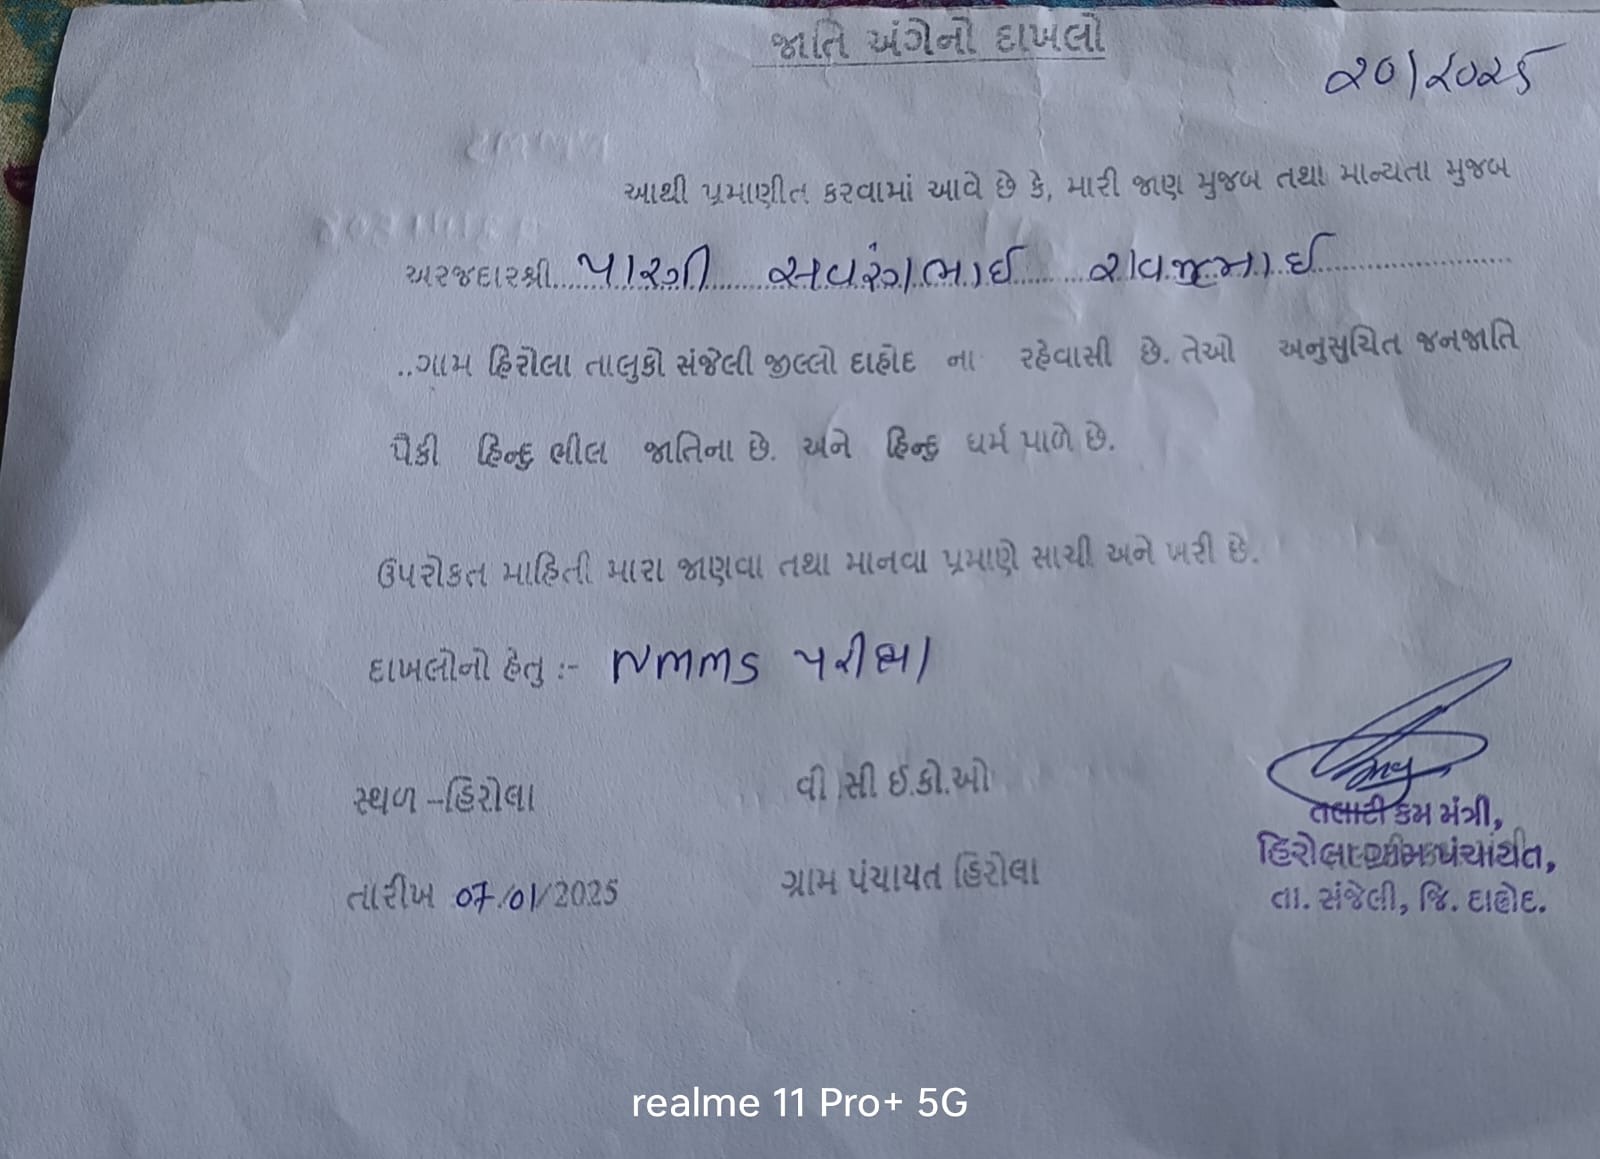 જાતિ અંગેનો દાખલો
૨૦/૨૦૨૫
આથી પ્રમાણીત કરવામાં આવે છે કે, મારી જાણ મુજબ તથા માન્યતા મુજબ
અરજદારશ્રી...પારગી સવરંગભાઈ રાવજીભાઈ
..ગામ હિરોલા તાલુકો સંજેલી જીલ્લો દાહોદ ના રહેવાસી છે. તેઓ અનુસુચિત જનજાતિ
પૈકી હિન્દુ ભીલ જાતિના છે. અને હિન્દુ ધર્મ પાળે છે.
ઉપરોકત માહિતી મારા જાણવા તથા માનવા પ્રમાણે સાચી અને ખરી છે.
દાખલોનો હેતુ :- NMMS પરીક્ષા
સ્થળ –હિરોલા
વી સી ઈ.કો.ઓ
તારીખ 07/01/2025
ગ્રામ પંચાયત હિરોલા
તલાટી કમ મંત્રી,
હિરોલા ગ્રામ પંચાયત,
તા. સંજેલી, જિ. દાહોદ.
realme 11 Pro+ 5G